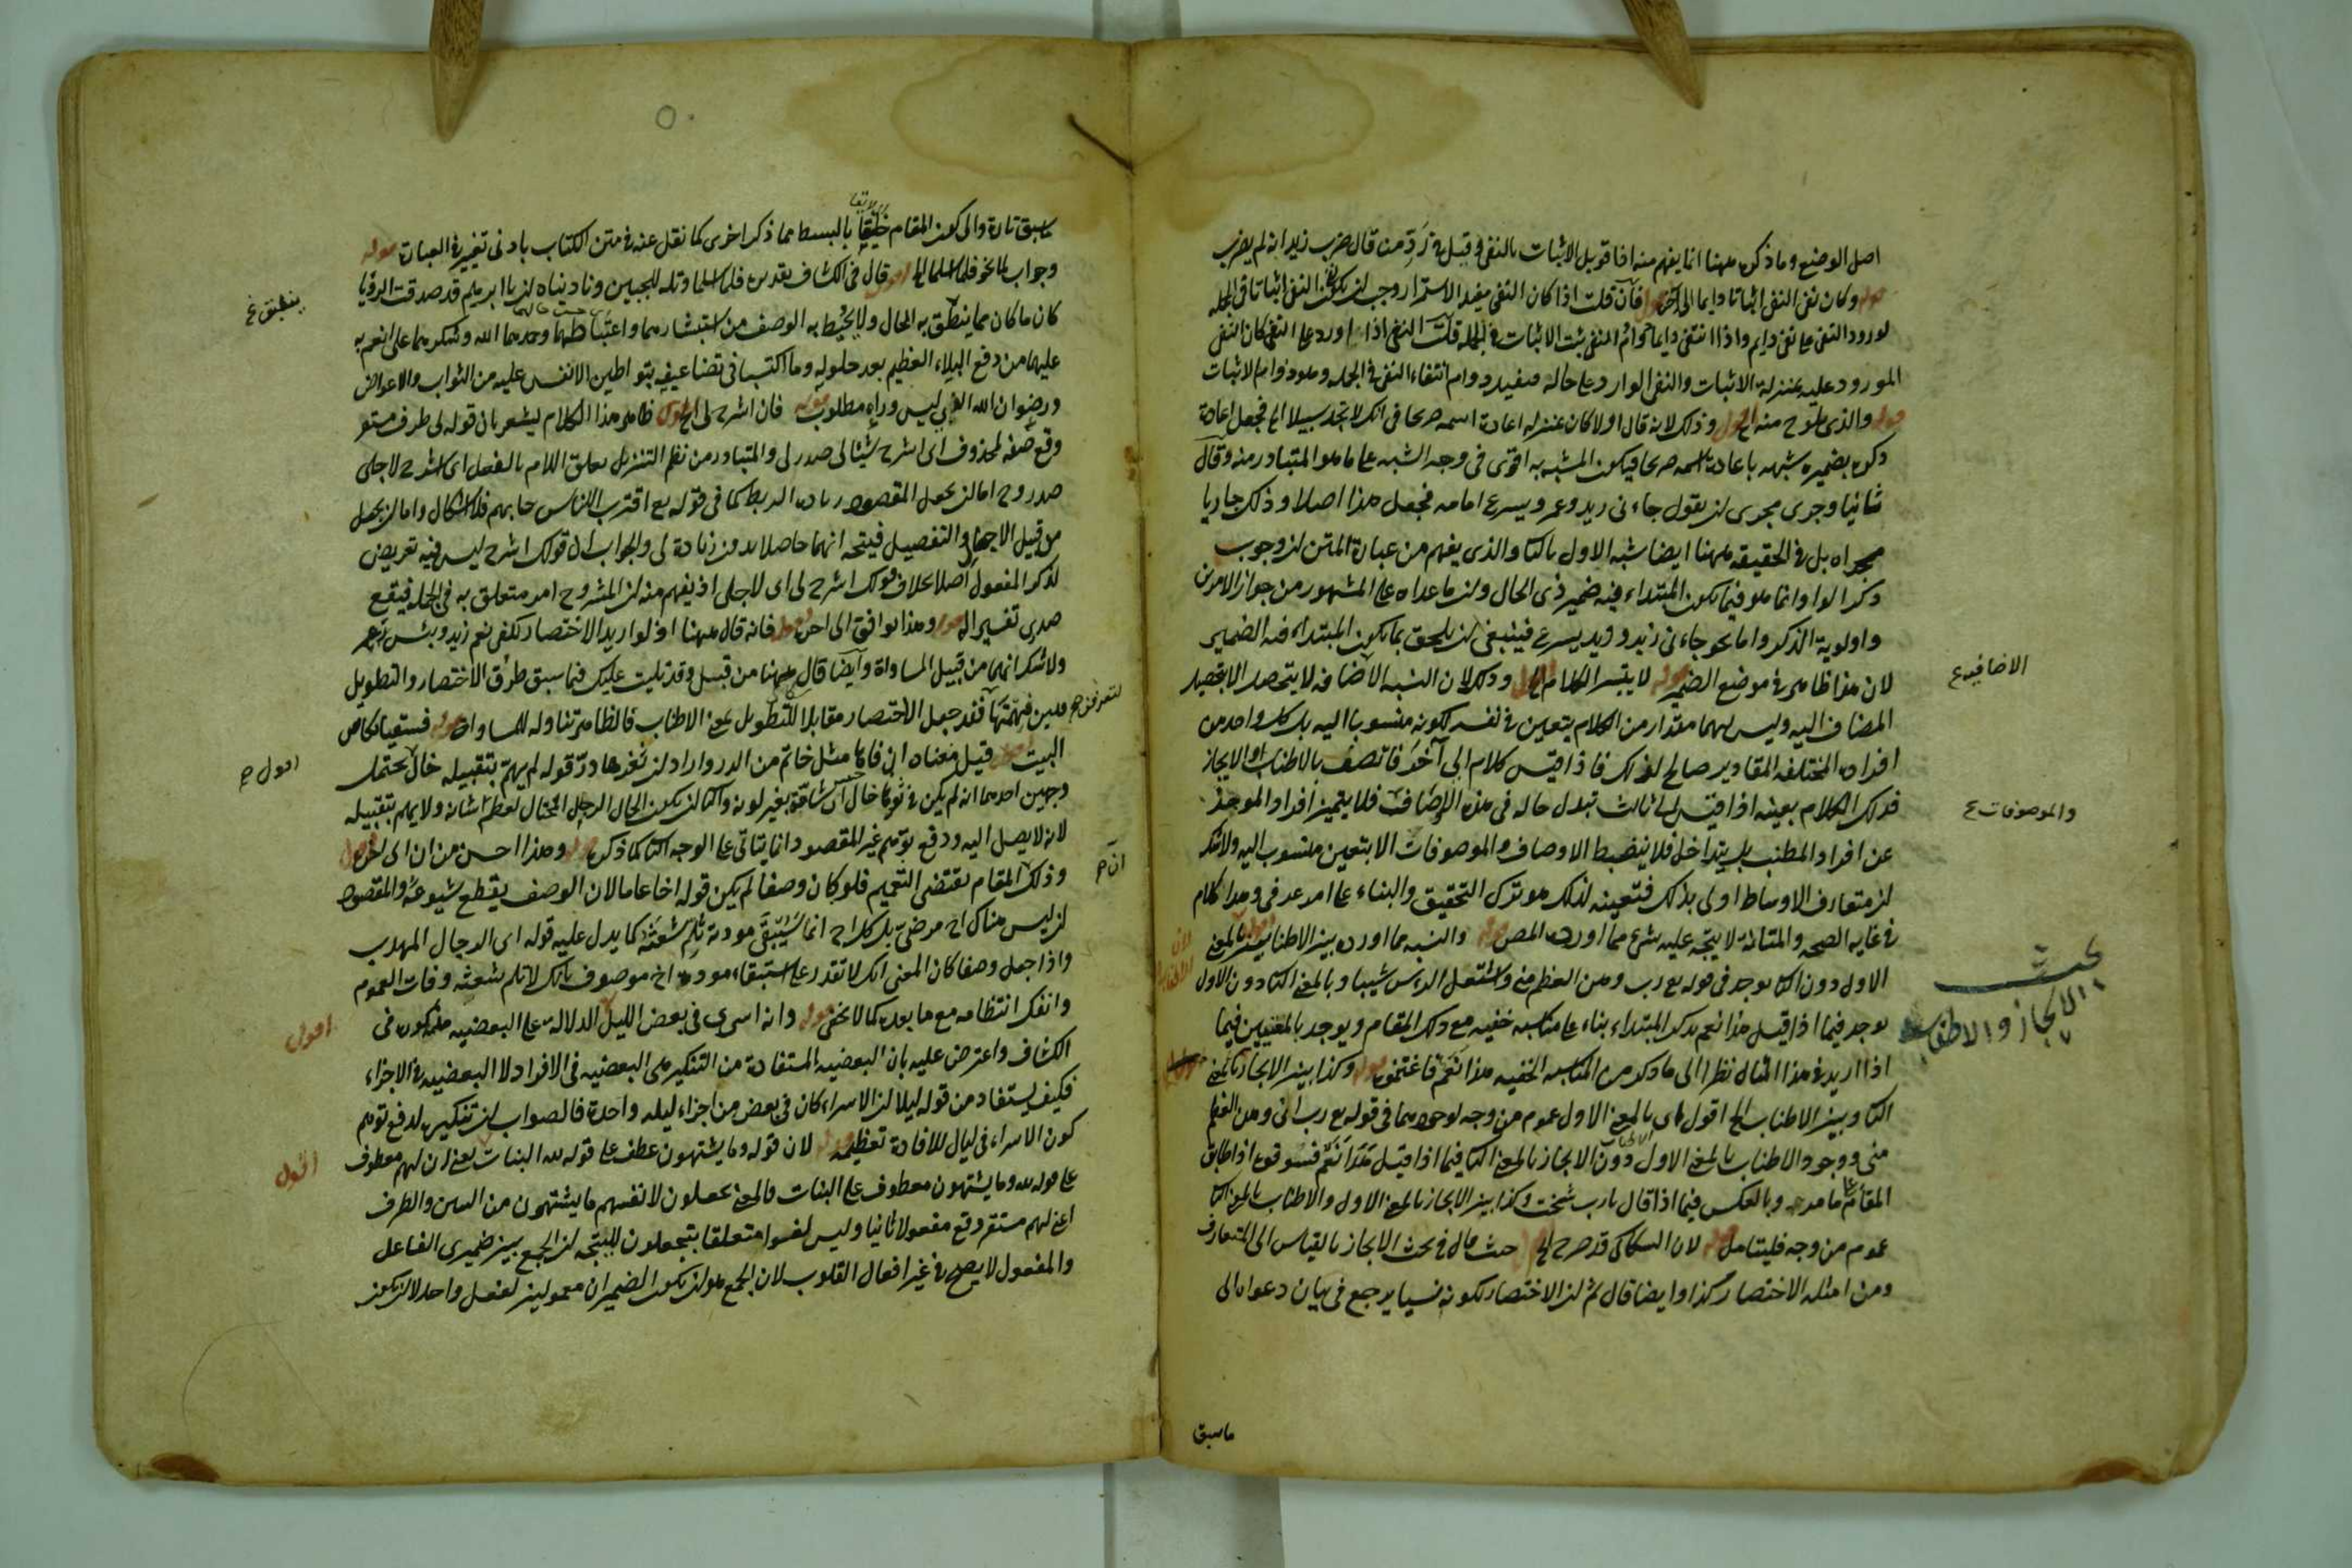 اصل الوضع وما ذكره ههنا انما يفهم منه اذا قوبل الاثبات بالنفى وقيل فى رد من قال ضرب زيد انه لم يضرب
قوله وكان نفى النفى اثباتا دايما الى آخره فان قلت اذا كان النفى مفيد الاستمرار وجب ان يكون نفى النفى اثباتا فى الجملة
لورود النفى على نفى دايم واذا انتفى دايما دوام المنفى ثبت الاثبات فى الجملة قلت النفى اذا اورد على النفى كان النفى
المورود عليه بمنزلة الاثبات والنفى الوارد على حاله فيفيد دوام انتفاء النفى فى الجملة وهو دوام الاثبات
قوله والذى يلوح منه اقول وذلك لانه قال اولا كان بمنزلة اعادة اسمه صريحا فى انك لا تجد سبيلا الى فجعل اعادة
ذكره بضميره شبهه باعادة اسمه صريحا فيكون المشبه به اقوى فى وجه الشبه على ما هو المتبادر منه وقال
ثانيا وجرى مجرى ان يقول جاءنى زيد وعمرو يسرع امامه فجعل هذا اصلا وذلك جاريا
مجراه بل فى الحقيقة ههنا ايضا شبه الاول بالثانى والذى يفهم من عبارة المتن ان وجوب
ذكر الواو انما هو فيما يكون المبتداء فيه ضمير ذى الحال وان ما عداه على المشهور من جواز الامرين
واولوية الذكر واما نحو جاءنى زيد وزيد يسرع فينبغى ان يلحق بما يكون المبتداء فيه الضمير
لان هذا ظاهر فى موضع الضمير قوله لا يتيسر الكلام اقول وذلك لان النسبة الاضافية لا يتحصل الا بتحصيل
المضاف اليه وليس لهما مقدار من الكلام يتعين فى نفسه لكونه منسوبا اليه بل كل واحد من
افراده المختلفة المقادير صالح لذلك فاذا قيس كلام الى آخر فاتصف بالاطناب او الايجاز
فذلك الكلام بعينه اذا قيس الى ثالث تبدل حاله فى هذه الاوصاف فلا يتميز افراد الموجز
عن افراد المطنب بل يتداخل فلا ينضبط الاوصاف والموصوفات الا بتعيين منسوب اليه ولا شك
ان متعارف الاوساط اولى بذلك فتعينه لذلك هو ترك التحقيق والبناء على امر عرفى وهذا كلام
فى غاية الصحة والمتانة لا يتجه عليه شىء مما اورده المص قوله والنسبة مما اورده بين الاطناب بالمعنى
الاول دون الثانى يوجد فى قوله رب وهن العظم منى واشتعل الرأس شيبا وبالمعنى الثانى دون الاول
يوجد فيما اذا قيل هذا نعم بذكر المبتداء بناء على مناسبة خفية مع ذلك المقام ويوجد بالمعنيين فيما
اذا اريد فى هذا المثال نظرا الى ما ذكر من المناسبة الخفية هذا نعم فاغتنموه قوله وكذا بين الايجاز بالمعنى
الثانى وبين الاطناب الخ اقول اى بالمعنى الاول عموم من وجه لوجودهما فى قوله رب انى وهن العظم
منى ووجود الاطناب بالمعنى الاول دون الايجاز بالمعنى الثانى فيما اذا قيل هذا نعم فسوقوه اذا طابق
المقام على ما مر وبالعكس فيما اذا قال يا رب شخت وكذا بين الايجاز بالمعنى الاول والاطناب بالمعنى الثانى
عموم من وجه فليتامل قوله لان السكاكى قد صرح الخ حيث قال فى بحث الايجاز بالقياس الى المتعارف
ومن امثلة الاختصار كذا وايضا قال ثم ان الاختصار لكونه نسبيا يرجع فى بيان دعواه الى
ما سبق
الاضافية ع
والموصوفات ع
بحث
الايجاز والاطناب
ما سبق تارة والى كون المقام خليقا بالبسط مما ذكر اخرى كما نقل عنه فى متن الكتاب بادنى تغيير فى العبارة قوله
وجواب لما نحو فلما اسلما الخ اقول قال فى الكشاف تقديره فلما اسلما وتله للجبين وناديناه ان يا ابرهيم قد صدقت الرؤيا
كان ما كان مما ينطق به الحال ولا يحيط به الوصف من استبشارهما واغتباطهما وحمدهما الله وشكرهما على ما انعم به
عليهما من دفع البلاء العظيم بعد حلوله وما اكتسبا فى تضاعيفه بتوطين الانفس عليه من الثواب والاعواض
ورضوان الله الذى ليس وراءه مطلوب قوله فان اشرح لى الخ اقول ظاهر هذا الكلام يشعر بان قوله لى ظرف مستقر
وقع صفة لمحذوف اى اشرح شيئا لى صدرى والمتبادر من نظم التنزيل تعلق اللام بالفعل اى اشرح لاجلى
صدرى اما ان يجعل المقصود زيادة الربط كما فى قوله تع اقترب للناس حسابهم فلا اشكال واما ان يجعل
من قبيل الاجمال والتفصيل فيتجه انهما حاصلان بدون زيادة لى والجواب ان قولك اشرح ليس فيه تعريض
لذكر المفعول اصلا بخلاف قولك اشرح لى اى لاجلى اذ يفهم منه ان المشروح امر متعلق به فى الجملة فيقع
صدرى تفسيرا له قوله وهذا يوافق الى آخره اقول فانه قال ههنا اذ لو اريد الاختصار لكفى نعم زيد وبئس عمرو
ولا شك انهما من قبيل المساواة وايضا قال ههنا من قبل وقد تليت عليك فيما سبق طرق الاختصار والتطويل
فلين فهمتها فقد جعل الاختصار مقابلا للتطويل بمعنى الاطناب فالظاهر تناوله للمساواة قوله فسقياك
البيت قيل معناه ان فاها مثل خاتم من الدر واراد ان ثغرها در قوله لم يهم بتقبيله خال يحتمل
وجهين احدهما انه لم يكن فى ثوبها خال اى شامة بغير لونه والثانى ان يكون الخال الرجل المختال لعظم شانه ولا يهم بتقبيله
لانه لا يصل اليه ودفع توهم غير المقصود انما يتاتى على الوجه الثانى كما ذكره قوله وهذا احسن من ان الى آخره اقول
وذلك ان المقام يقتضى التعميم فلو كان وصفا لم يكن قوله اخا عاما لان الوصف يقطع شيوعه والمقصود
ان ليس هناك اخ مرضى بل كل اخ انما يستبقى مودته بلم شعثه كما يدل عليه قوله اى الرجال المهذب
واذا جعل وصفا كان المعنى انك لا تقدر على استبقاء مودة اخ موصوف بانك لا تلم شعثه وفات العموم
وانفك انتظامه مع ما بعده كما لا يخفى قوله وانه اسرى فى بعض الليل الدلالة على البعضية مذكورة فى
الكشاف واعترض عليه بان البعضية المستفادة من التنكير هى البعضية فى الافراد لا البعضية فى الاجزاء
فكيف يستفاد من قوله ليلا ان الاسراء كان فى بعض من اجزاء ليلة واحدة فالصواب ان تنكيره لدفع توهم
كون الاسراء فى ليال للافادة تعظيمه قوله لان قوله وما يشتهون عطف على قوله لله البنات يعنى ان لهم معطوف
على قوله لله وما يشتهون معطوف على البنات فالمعنى يجعلون لانفسهم ما يشتهون من البنين والظرف
اعنى لهم مستقر وقع مفعولا ثانيا وليس لغوا متعلقا بتجعلون ليتجه ان الجمع بين ضميرى الفاعل
والمفعول لا يصح فى غير افعال القلوب لان الجمع هو ان يكون الضميران معمولين لفعل واحد لا ان يكون
ينطق ع
اقول
اقول
اقول